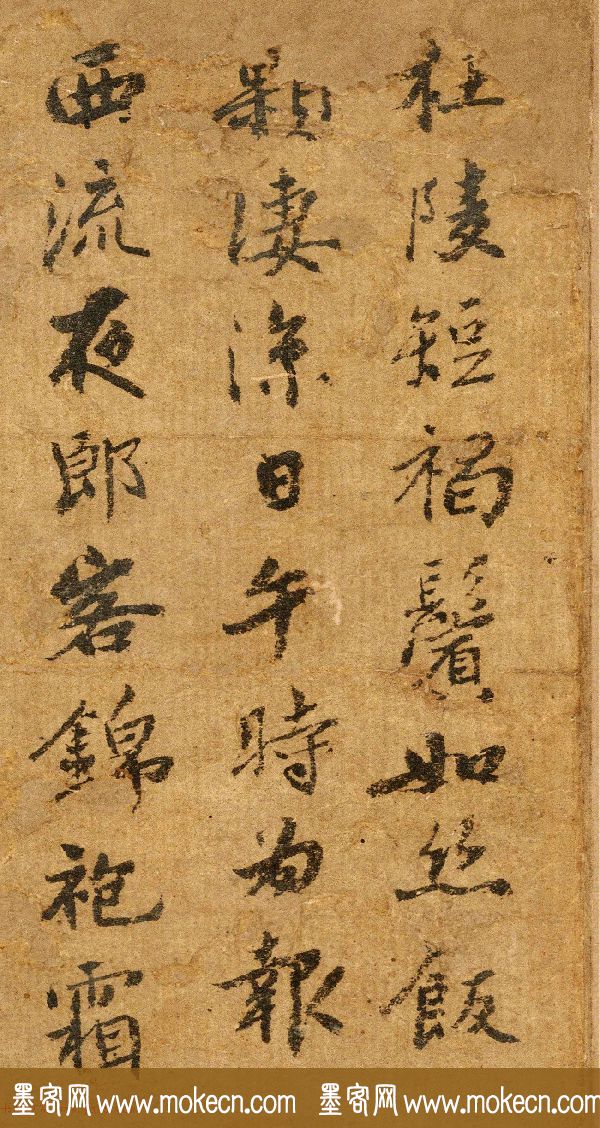 杜陵短褐鬢如絲飯
顆凄涼日午時為報
西流夜郎客錦袍霜
墨客网 www.mokecn.com 墨客网 www.mokecn.com